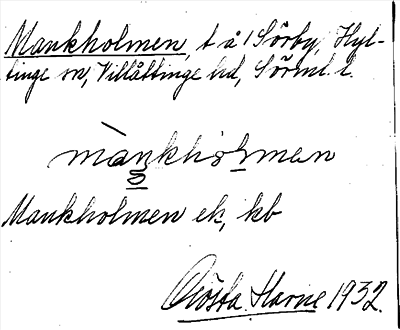 Mankholmen, t å 1 Sörby, Hyl-
tinge sn, Villåttinge hd, Sörml. l.
mànkhɷlmen
Mankholmen ek, kb
Gösta Harne 1932.